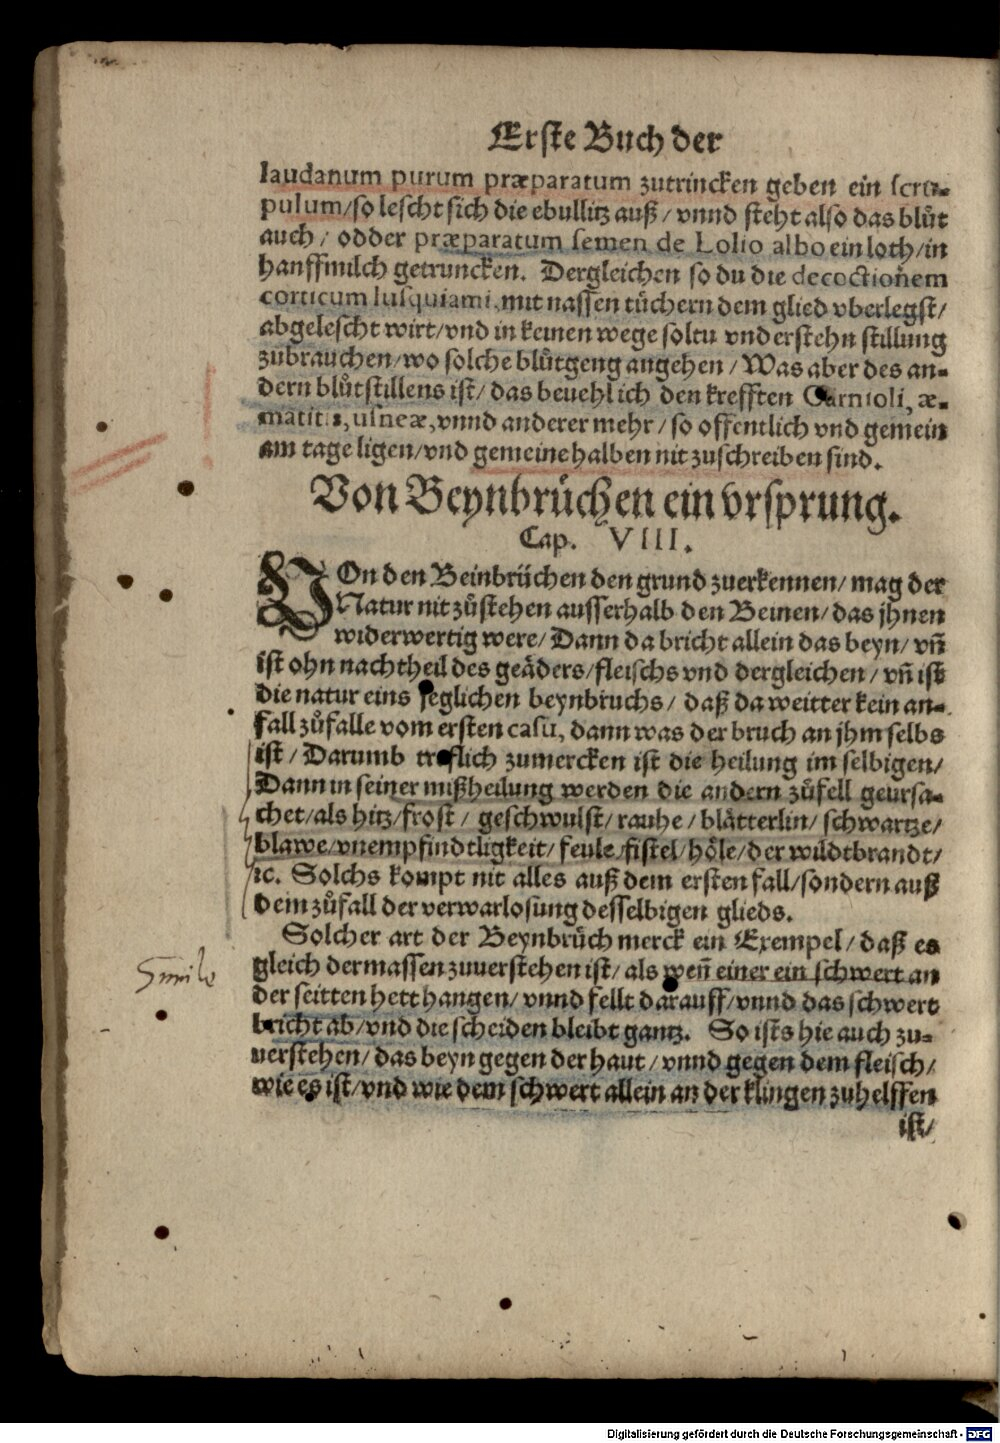 Erste Buch der
laudanum purum præparatum zutrincken geben ein scru-
pulum/so lescht sich die ebullitz auß/vnnd steht also das blůt
auch/odder præparatum semen de Lolio albo ein loth/in
hanffmilch getruncken. Dergleichen so du die decoctionem
corticum Iusquiami, mit nassen tüchern dem glied vberlegst/
abgelescht wirt/vnd in keinen wege soltu vnd erstehn stillung
zůbrauchen/wo solche blůtgeng angehen/Was aber des an-
dern blůtstillens ist/das beuehl ich den krefften Carnioli, æ-
matitis, usneæ, vnnd anderer mehr/so offentlich vnd gemein
am tage ligen/vnd gemeine halben nit zuschreiben sind.
Von Beynbrüchen ein vrsprung.
Cap. VIII.
VOn den Beinbrüchen den grund zuerkennen/mag der
Natur nit zůstehen ausserhalb den Beinen/das jhnen
widerwertig were/Dann da bricht allein das beyn/vñ
ist ohn nachtheil des geäders/fleischs vnd dergleichen/vñ ist
die natur eins jeglichen beynbruchs/daß da weitter kein an-
fall zůfalle vom ersten casu, dann was der bruch an jhm selbs
ist/Darumb treflich zumercken ist die heilung im selbigen/
Dann in seiner mißheilung werden die andern zůfell geursa-
chet/als hitz/frost/geschwulst/rauhe/blätterlin/schwartze/
blawe/vnempfindtligkeit/feule/fistel/höle/der wildtbrandt/
ꝛc. Solchs kompt nit alles auß dem ersten fall/sondern auß
dem zůfall der verwarlosung desselbigen glieds.
Solcher art der Beynbrüch merck ein Exempel/daß es
gleich dermassen zuuerstehen ist/als weñ einer ein schwert an
Simile
der seitten hett hangen/vnnd fellt darauff/vnnd das schwert
bricht ab/vnd die scheiden bleibt gantz. So ists hie auch zu-
uerstehen/das beyn gegen der haut/vnnd gegen dem fleisch/
wie es ist/vnd wie dem schwert allein an der klingen zuhelffen
ist/
Digitalisierung gefördert durch die Deutsche Forschungsgemeinschaft - DFG